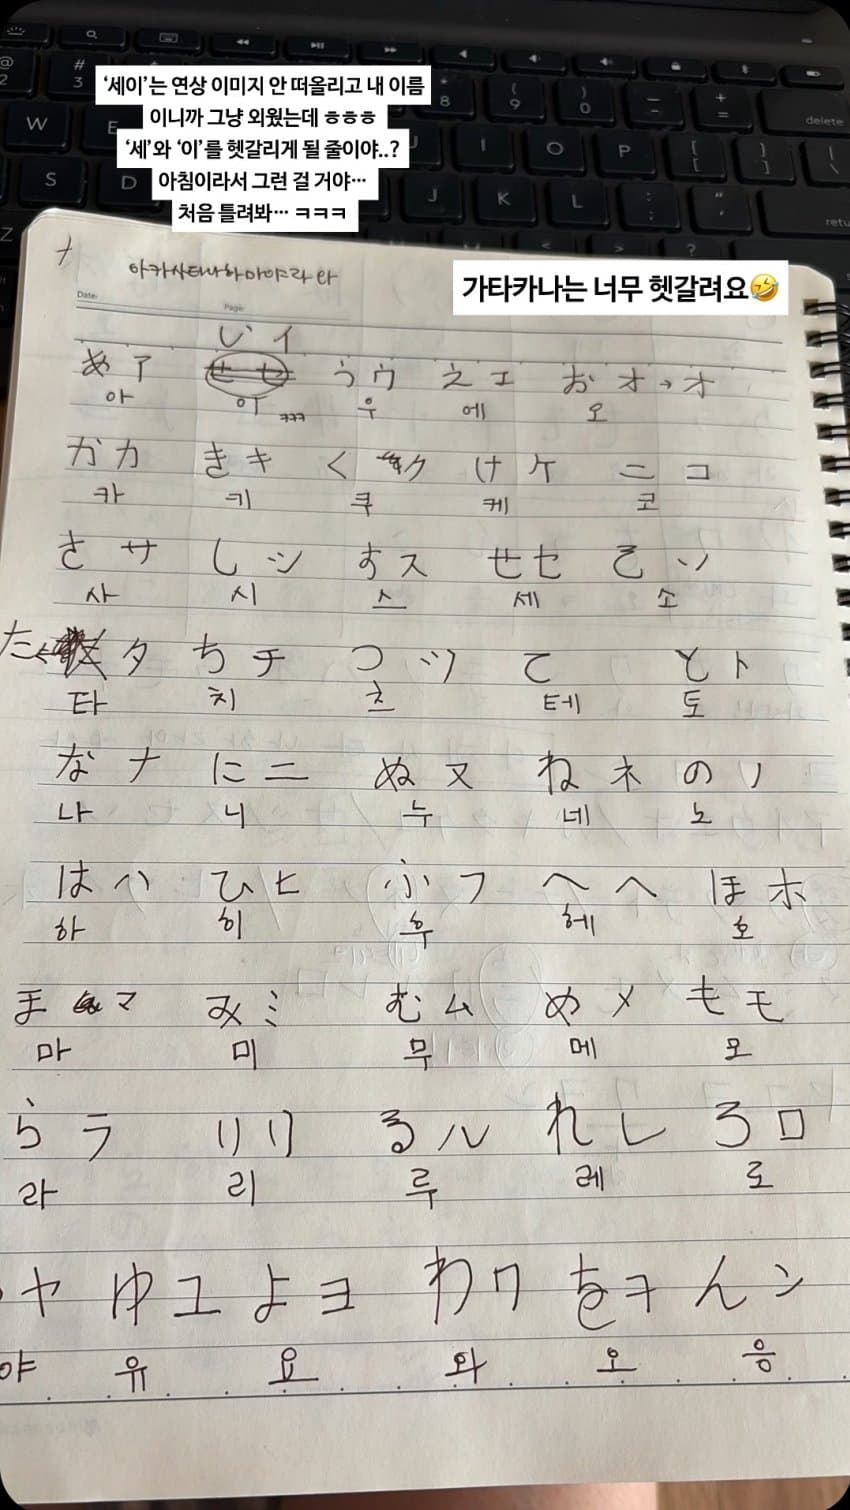 ‘세이’는 연상 이미지 안 떠올리고 내 이름
이니까 그냥 외웠는데 ㅎㅎㅎ
‘세’와 ‘이’를 헷갈리게 될 줄이야..?
아침이라서 그런 걸 거야…
처음 틀려봐… ㅋㅋㅋ
아카사타나하마야라와
가타카나는 너무 헷갈려요🤣
Date: Page:
い イ
あ ア せ セ う ウ え エ お オ → オ
아 이 ㅋㅋㅋ 우 에 오
か カ き キ く ク け ケ こ コ
카 키 쿠 케 코
さ サ し シ す ス せ セ そ ソ
사 시 스 세 소
た ← タ ち チ つ ツ て と ト
타 치 츠 테 토
な ナ に ニ ぬ ヌ ね ネ の ノ
나 니 누 네 노
は ハ ひ ヒ ふ フ へ ヘ ほ ホ
하 히 후 헤 호
ま マ み ミ む ム め メ も モ
마 미 무 메 모
ら ラ り リ る ル れ レ ろ ロ
라 리 루 레 로
ヤ ゆ ユ よ ヨ わ ワ を ヲ ん ン
야 유 요 와 오 응